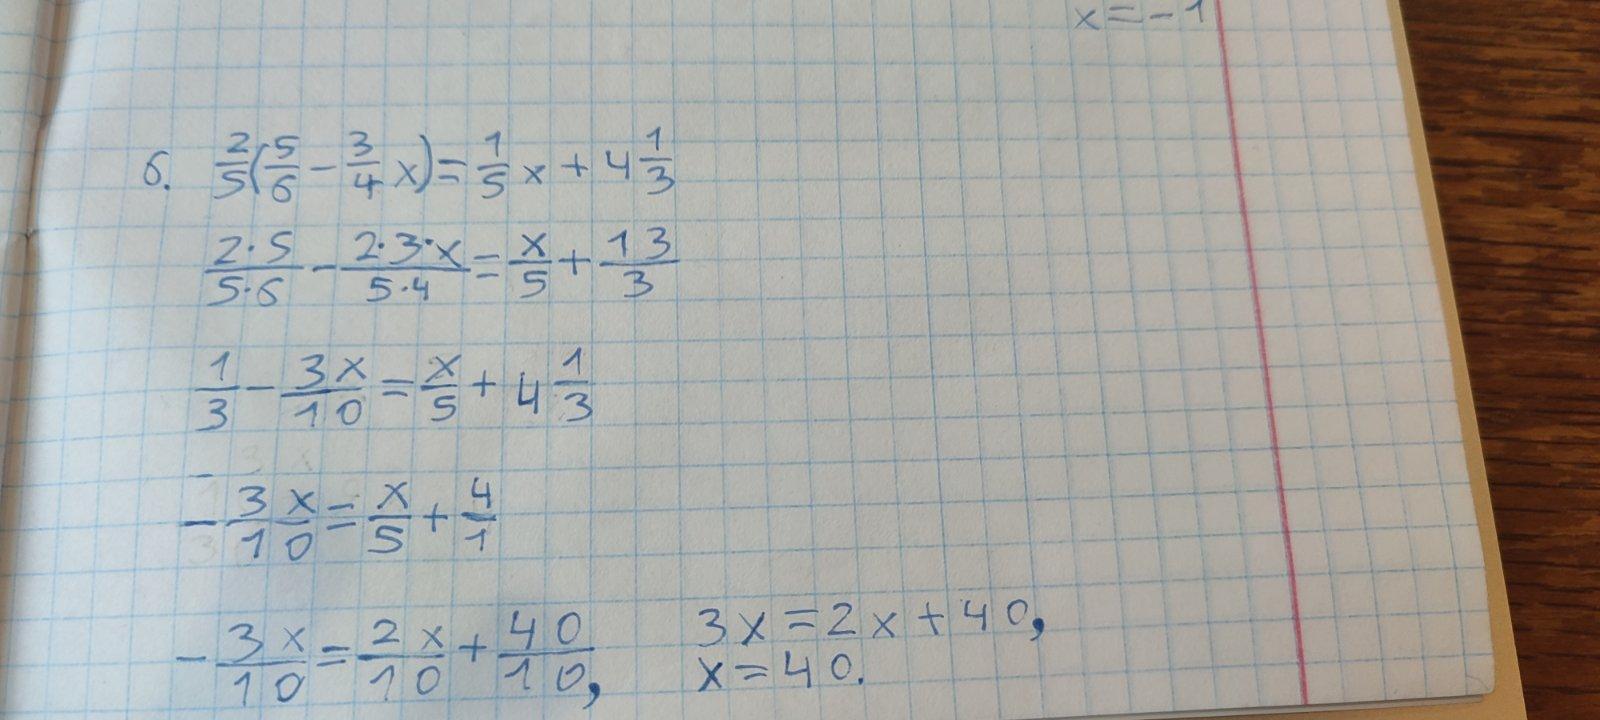 x = - 1
6. 2/5 (5/6 - 3/4 x) = 1/5 x + 4 1/3
2·5/5·6 - 2·3·x/5·4 = x/5 + 13/3
1/3 - 3x/10 = x/5 + 4 1/3
- 3x/10 = x/5 + 4/1
- 3x/10 = 2x/10 + 40/10, 3x = 2x + 40,
x = 40.